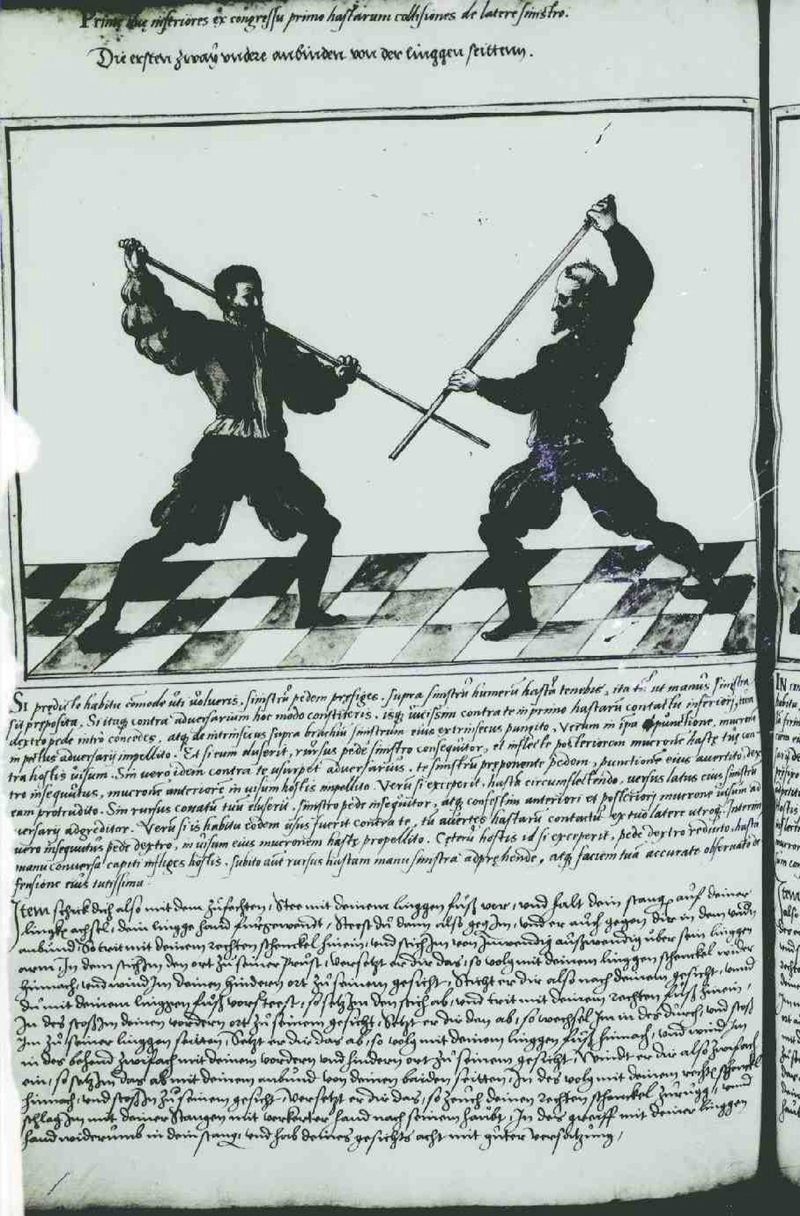 Primę duę inferiores ex congressu primo hastarum collisiones de latere sinistro.
Die ersten zway undere anbinden von der linggen seittenn.
Si prędicto habitu commode uti volueris, sinistrum pedem prefiges, supra sinistrum humerum hastam tenebis, ita tamen ut manus sinistra
sit preposita. Si itaque contra adversarium hoc modo constiteris, isque vicissim contra te in primo hastarum contactu inferiori, tum
dextro pede intro concedes, atque de intrinsecus supra brachium sinistrum eius extrinsecus pungito. Verum in ipsa punctione, mucronem
in pectus adversarij impellito. Et si eum eluserit, rursus pede sinistro consequitor, et inflecte posteriorem mucronem hastę tuę con
tra hostis visum. Sin vero idem contra te usurpet adversarius, te sinistrum preponente pedem, punctione eius avertito, dex
tro insequutus, mucrone anteriore in visum hostis impellito. Verum si exceperit, hasta circumflectendo, versus latus eius sinistrum
eam protrudito. Sin rursus conatum tuum eluserit, sinistro pede insequitor, atque confestim anteriori et posteriori mucrone visum ad
versarij adgreditor. Verum si is habitu eodem usus fuerit contra te, tu avertes hastarum contactu ex tuo latere utroque. Interim
vero insequutus pede dextro, in visum eius mucronem hastę propellito. Cęterum hostis id si exceperit, pede dextro reducto, hasta
manu conversa capiti infliges hostis, subito autem rursus hastam manu sinistra adprehende, atque faciem tuam accurate observato de
fensione eius tutissima.
Item schick dich also mit dem zufechten, Stee mit deinem linggen fuß vor, und halt dein stang auf deiner
lingke achsl, dein lingge hand fürgewandt, Steest du dann also gegen Im, und er auch gegen dir in dem undern
anbund, So trit mit deinem rechten schenckel hinein, und stich Im von Innwendig außwendig über sein linggen
arm. In dem stich Im den ort zu seiner prust, versetzt er dir das, so volg mit deinem linggen schenckel wider
hinnach, und wind Im deinen hindern ort zu seinem gesicht, Sticht er dir also nach deinem gesicht, unnd
du mit deinem linggen fuß vorsteest, so setz Im den stich ab, und trit mit deinem rechten fuß hinein,
In des stoß Im deinen vordern ort zu seinem gesicht, Setzt er dir dan ab, so wechsel Im in des durch, und stoß
Im zu seiner linggen seitten, Setzt er dir das ab, so volg mit deinem linggen fuß hinnach, und wind Im
in des behend zwifach mit deinem vordern und hindern ort zu seinem gesicht, Windt er dir also zwifach
ein, so setz Im das ab mit deinem anbund von deinen baiden seitten, In des volg mit deinem rechten schenckel
hinnach, und stoß Im zu seinem gesicht, Versetzt er dir das, so zeuch deinen rechten schenckel zurugg, und
schlag Im mit deiner Stangen mit verkerter hand nach seinem haubt, In des greiff mit deiner linggen
hand widerumb in dein stang, und hab deines gesichts acht mit guter versatzung,